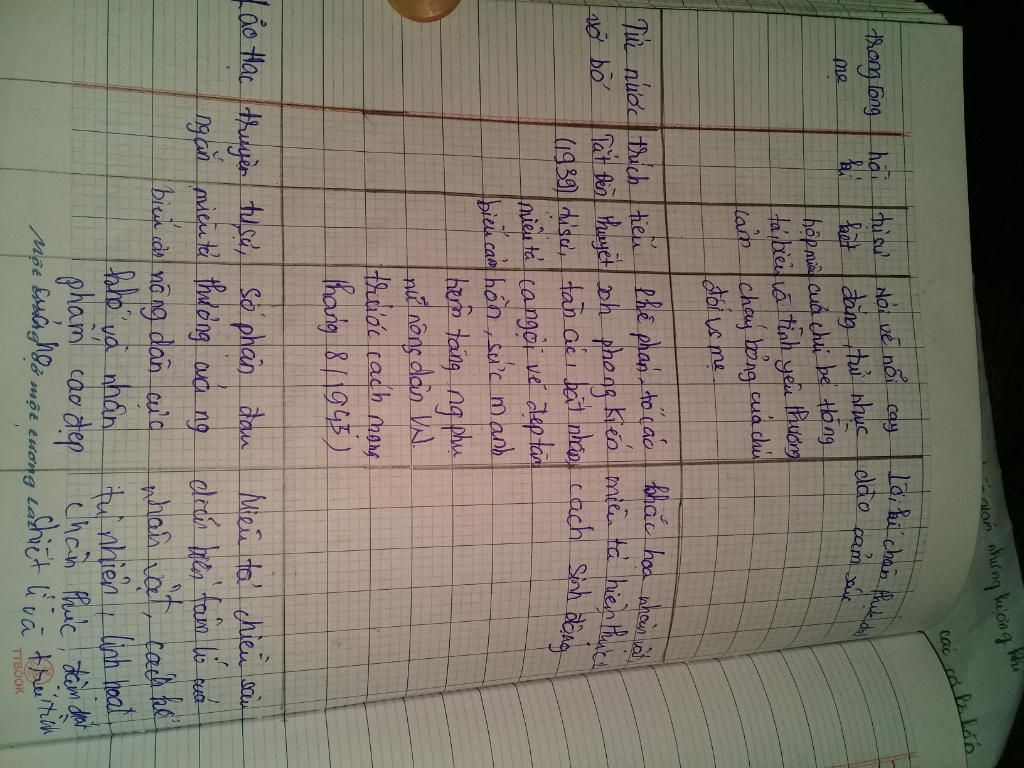 trong lòng
mẹ
hồi
kí
tự sự
Nói về nỗi cay
đắng, tủi nhục
của chú bé Hồng
và tình yêu thương
cháy bỏng của chú
đối vs mẹ
Lời kí chân thực
dào cảm xúc
Tức nước
vỡ bờ
trích
Tắt đèn
(1939)
tiểu
thuyết
tự sự,
miêu tả
biểu cảm
Phê phán, tố cáo
xh phong kiến
tàn ác, bất nhân
ca ngợi vẻ đẹp tâm
hồn, sức mạnh
tiềm tàng ng phụ
nữ nông dân VN
trước cách mạng
tháng 8 (1945)
khắc hoạ nhân vật
miêu tả hiện thực,
cách sinh động
Lão Hạc
truyện
ngắn
tự sự,
miêu tả
biểu cảm
Số phận đau
thương của ng
nông dân cực
khổ và nhân
phẩm cao đẹp
Miêu tả chiều sâu
diễn biến tâm lí của
nhân vật, cách kể
tự nhiên, linh hoạt
chân thực, đậm chất
triết lí và trữ tình
TTBOOK
những